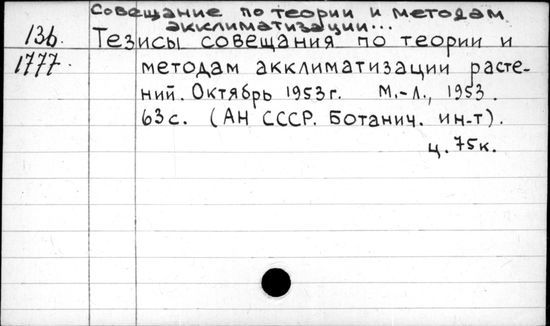 Совещание по теории и методам
акклиматизации...
13б. Тезисы совещания по теории и
1777. методам акклиматизации расте-
ний. Октябрь 1953г. М.-Л., 1953.
63с. (АН СССР. Ботанич. ин-т).
ц. 75к.